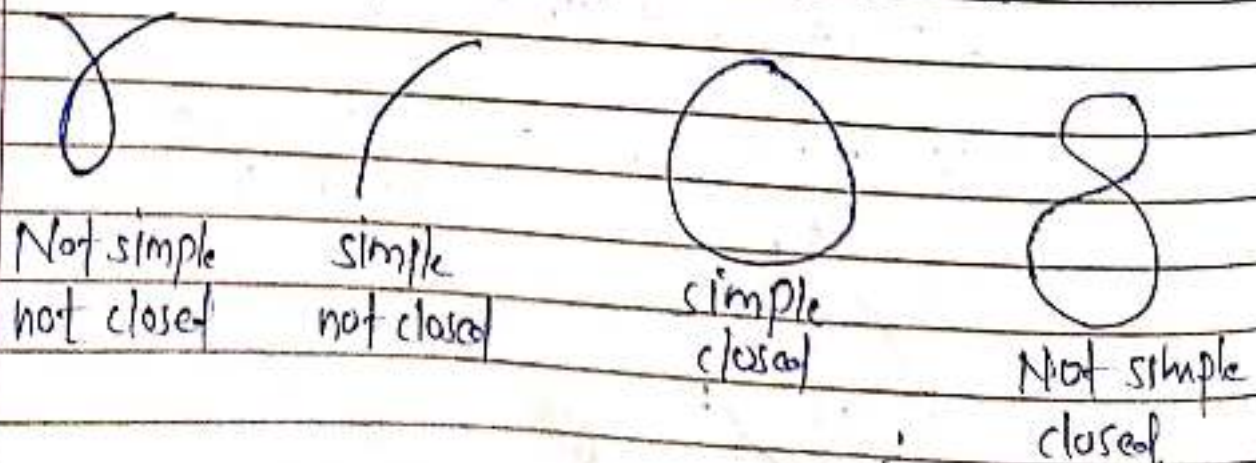 Not simple
not closed
simple
not closed
simple
closed
Not simple
closed